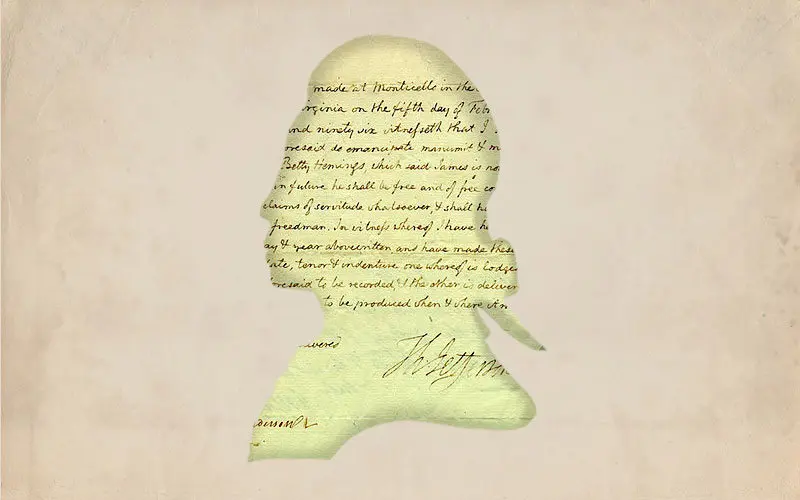 made at Monticello in the
irginia on the fifth day of Feb
and ninety six witnesseth that I
oresaid do emancipate manumit & m
Betty Hemings, which said James is no
in future he shall be free and of free co
claims of servitude whatsoever, & shall ha
freedman. In witness whereof I have he
ay & year abovewritten and have made these
ate, tenor & indenture one whereof is lodge
oresaid to be recorded, & the other is deliver
to be produced when & where An
vered
Th Jefferson
derson